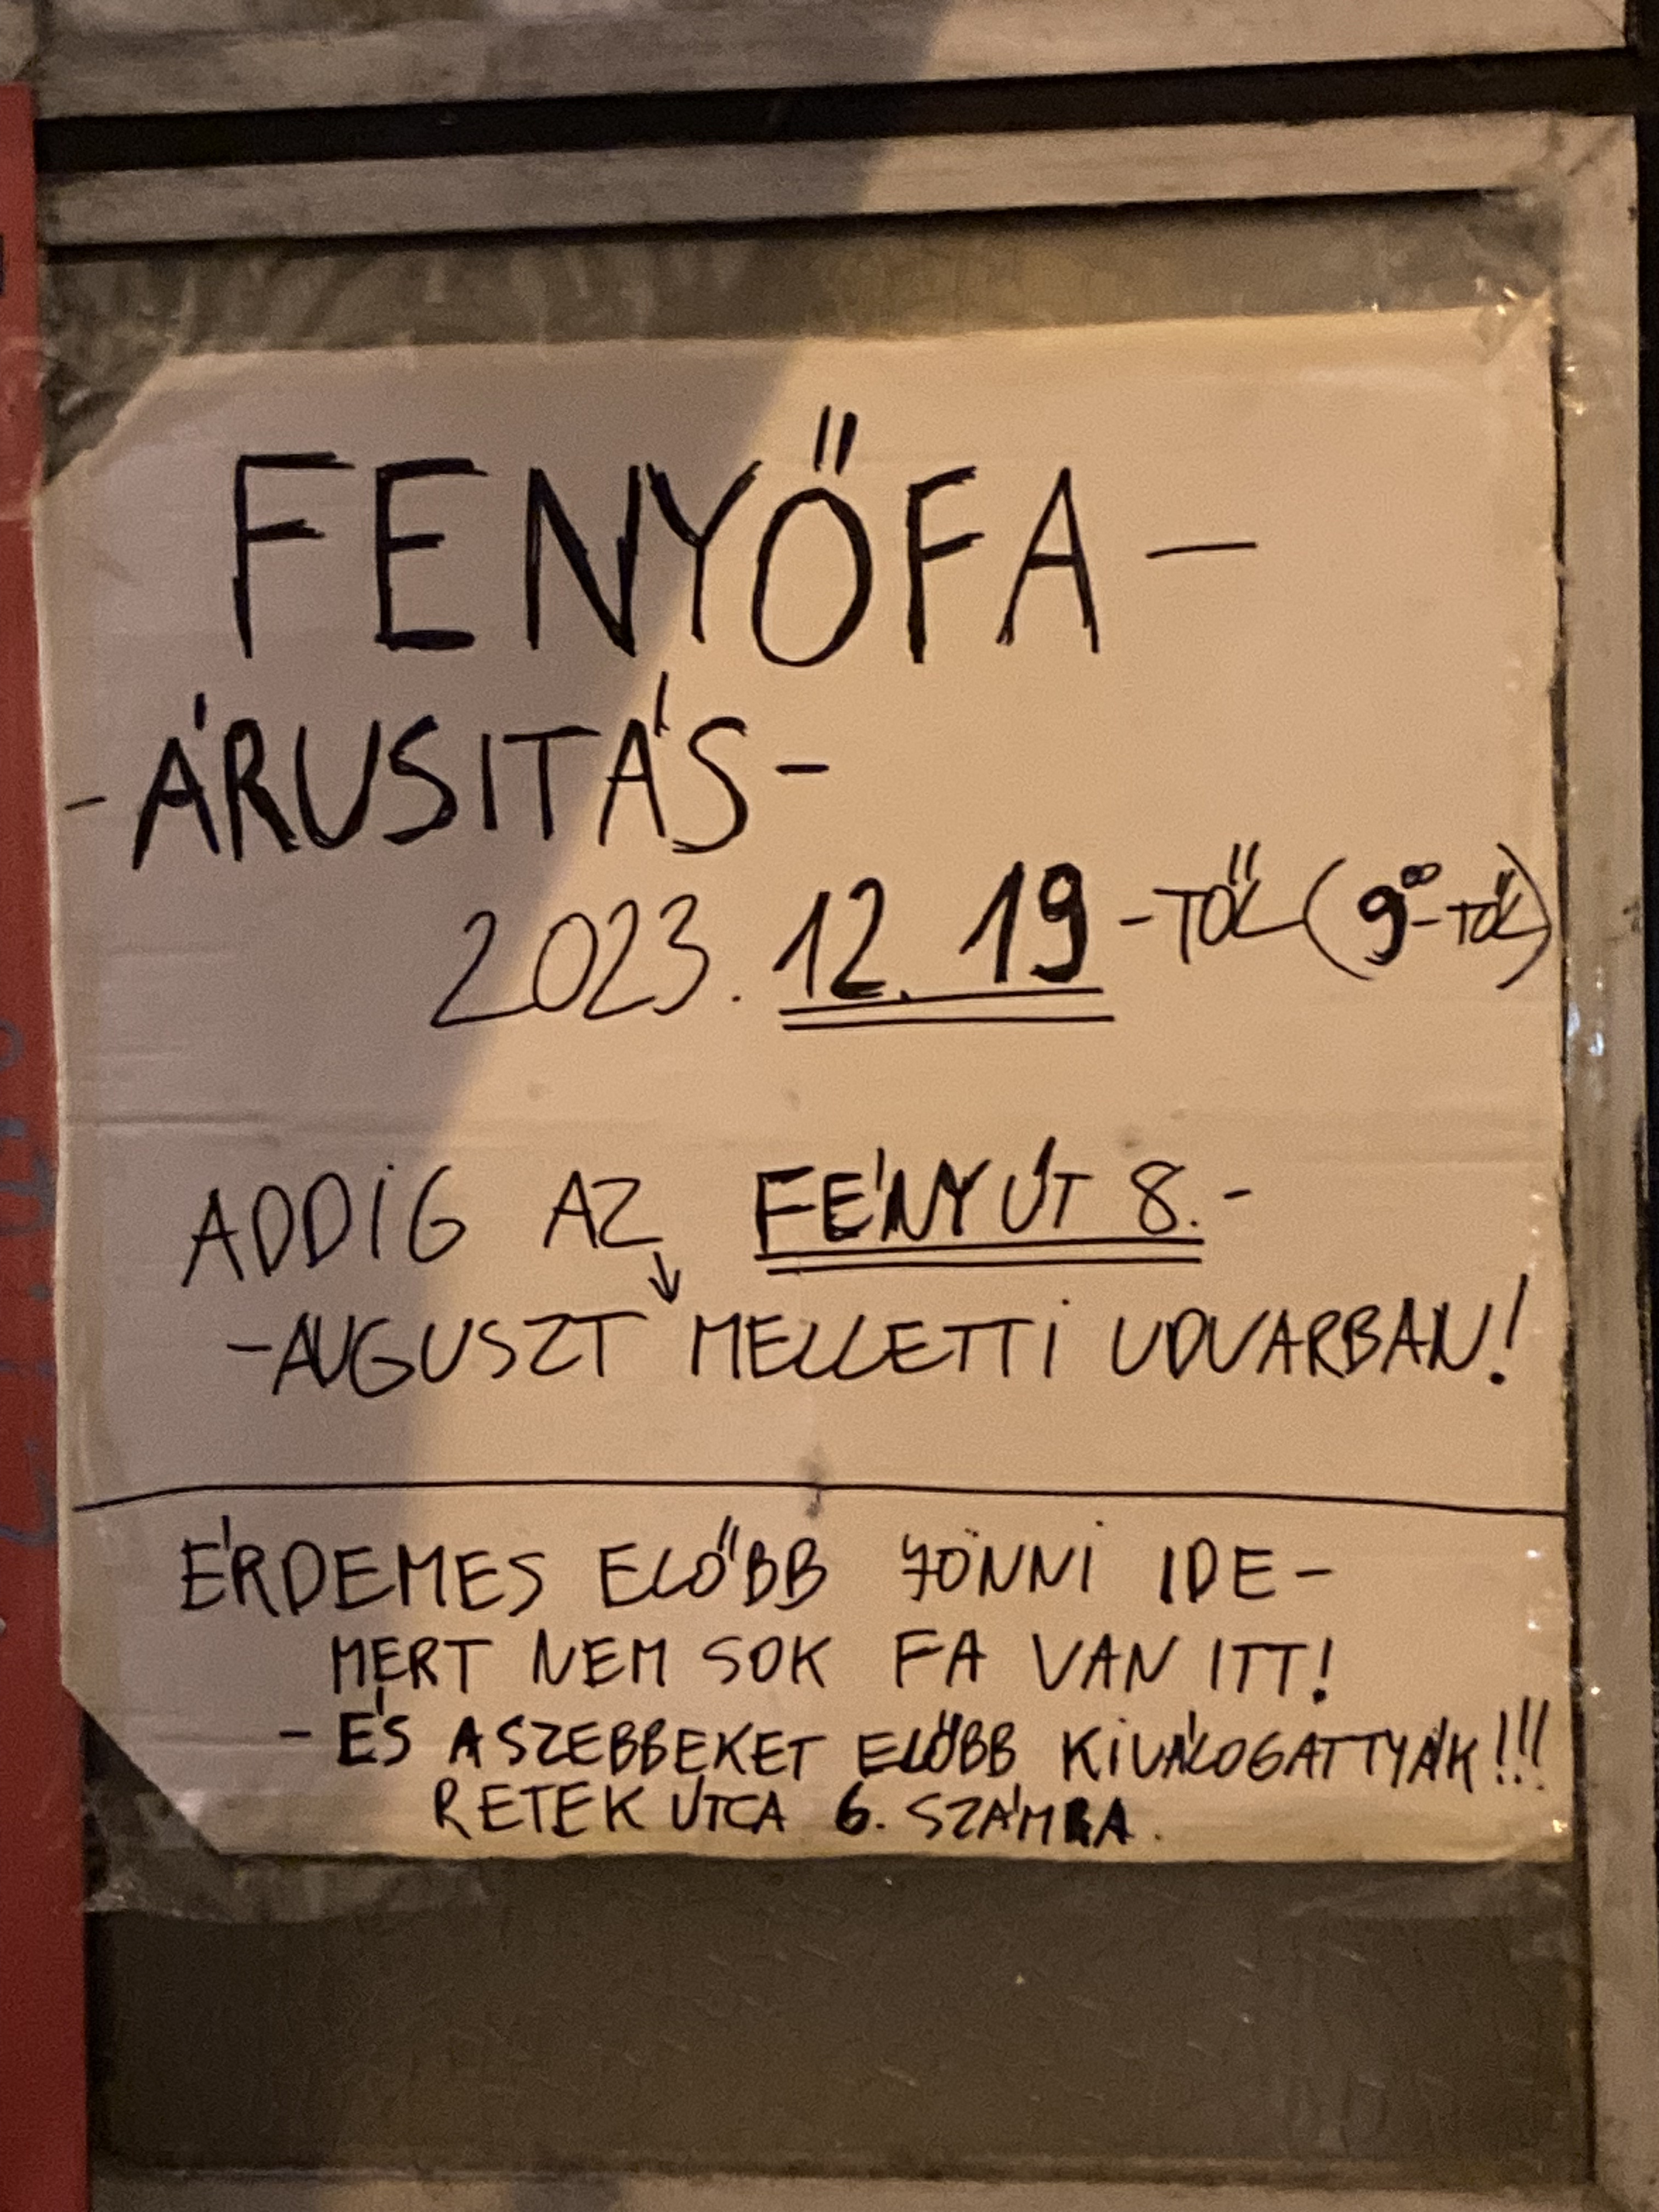 FENYŐFA-
-ÁRUSITÁS-
2023. 12. 19-TŐL (9⁰⁰-TŐL)
ADDIG AZ FÉNY ÚT 8.-
-AUGUSZT MELLETTI UDVARBAN!
ÉRDEMES ELŐBB JÖNNI IDE-
MERT NEM SOK FA VAN ITT!
- ÉS A SZEBBEKET ELŐBB KIVÁLOGATTYÁK!!!
RETEK UTCA 6. SZÁMRA.